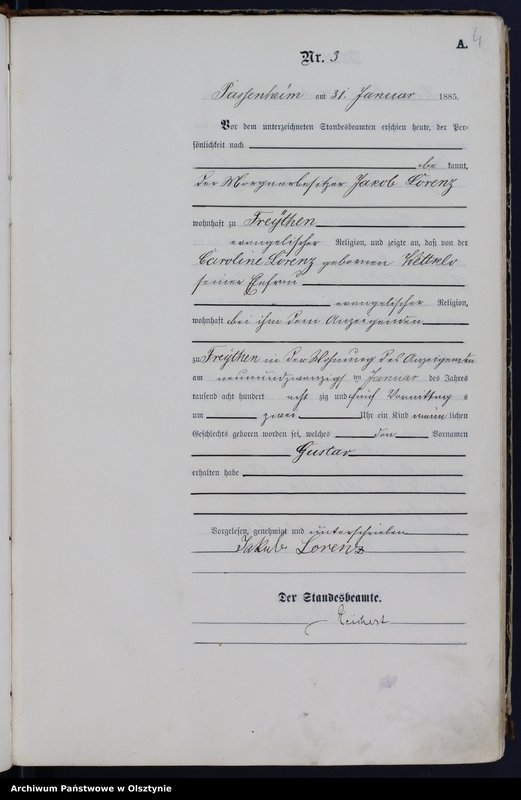 A. 4
Nr. 3
Passenheim am 31. Januar 1885.
Vor dem unterzeichneten Standesbeamten erschien heute, der Per-
sönlichkeit nach
be kannt,
der Morgnerbesitzer Jakob Lorenz
wohnhaft zu Freythen
evangelischer Religion, und zeigte an, daß von der
Caroline Lorenz gebornen
seiner Ehefrau
evangelischer Religion,
wohnhaft bei ihm dem Anzeigenden
zu Freythen in der Wohnung des Anzeigenden
am neunundzwanzigsten Januar des Jahres
tausend acht hundert acht zig und fünf Vormittag s
um zwei Uhr ein Kind männ lichen
Geschlechts geboren worden sei, welches den Vornamen
Gustav
erhalten habe
Vorgelesen, genehmigt und unterschrieben
Jakub Lorenz
Der Standesbeamte.
Archiwum Państwowe w Olsztynie